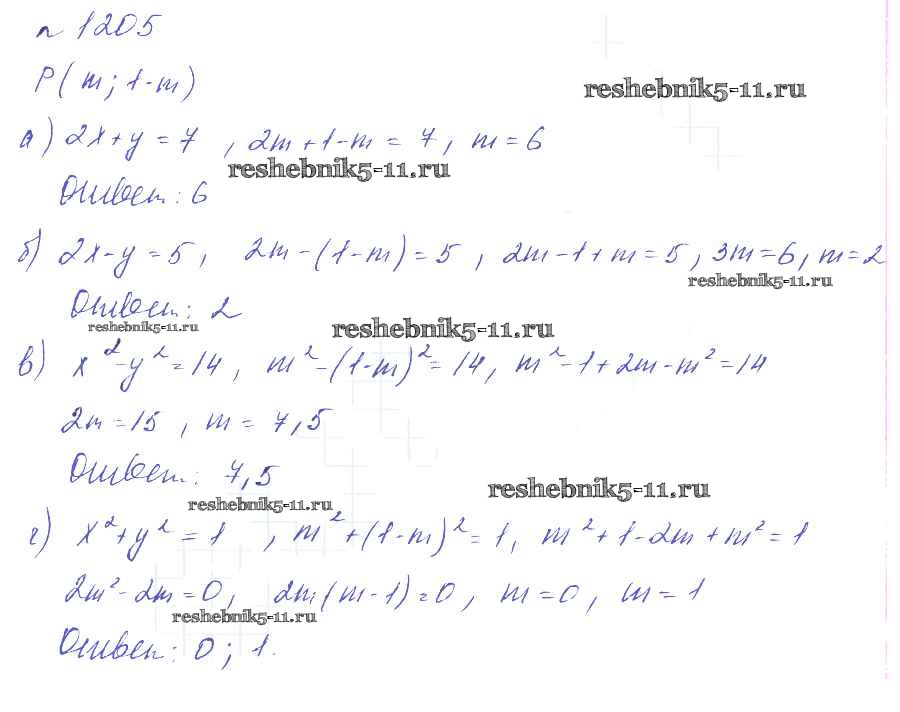 n 1205
P(m; 1-m)
reshebnik5-11.ru
а) 2x+y=7, 2m+1-m=7, m=6
reshebnik5-11.ru
Ответ: 6
б) 2x-y=5, 2m-(1-m)=5, 2m-1+m=5, 3m=6, m=2
reshebnik5-11.ru
Ответ: 2
reshebnik5-11.ru
reshebnik5-11.ru
в) x²-y²=14, m²-(1-m)²=14, m²-1+2m-m²=14
2m=15, m=7,5
Ответ: 7,5
reshebnik5-11.ru
reshebnik5-11.ru
г) x²+y²=1, m²+(1-m)²=1, m²+1-2m+m²=1
2m²-2m=0, 2m(m-1)=0, m=0, m=1
reshebnik5-11.ru
Ответ: 0; 1.